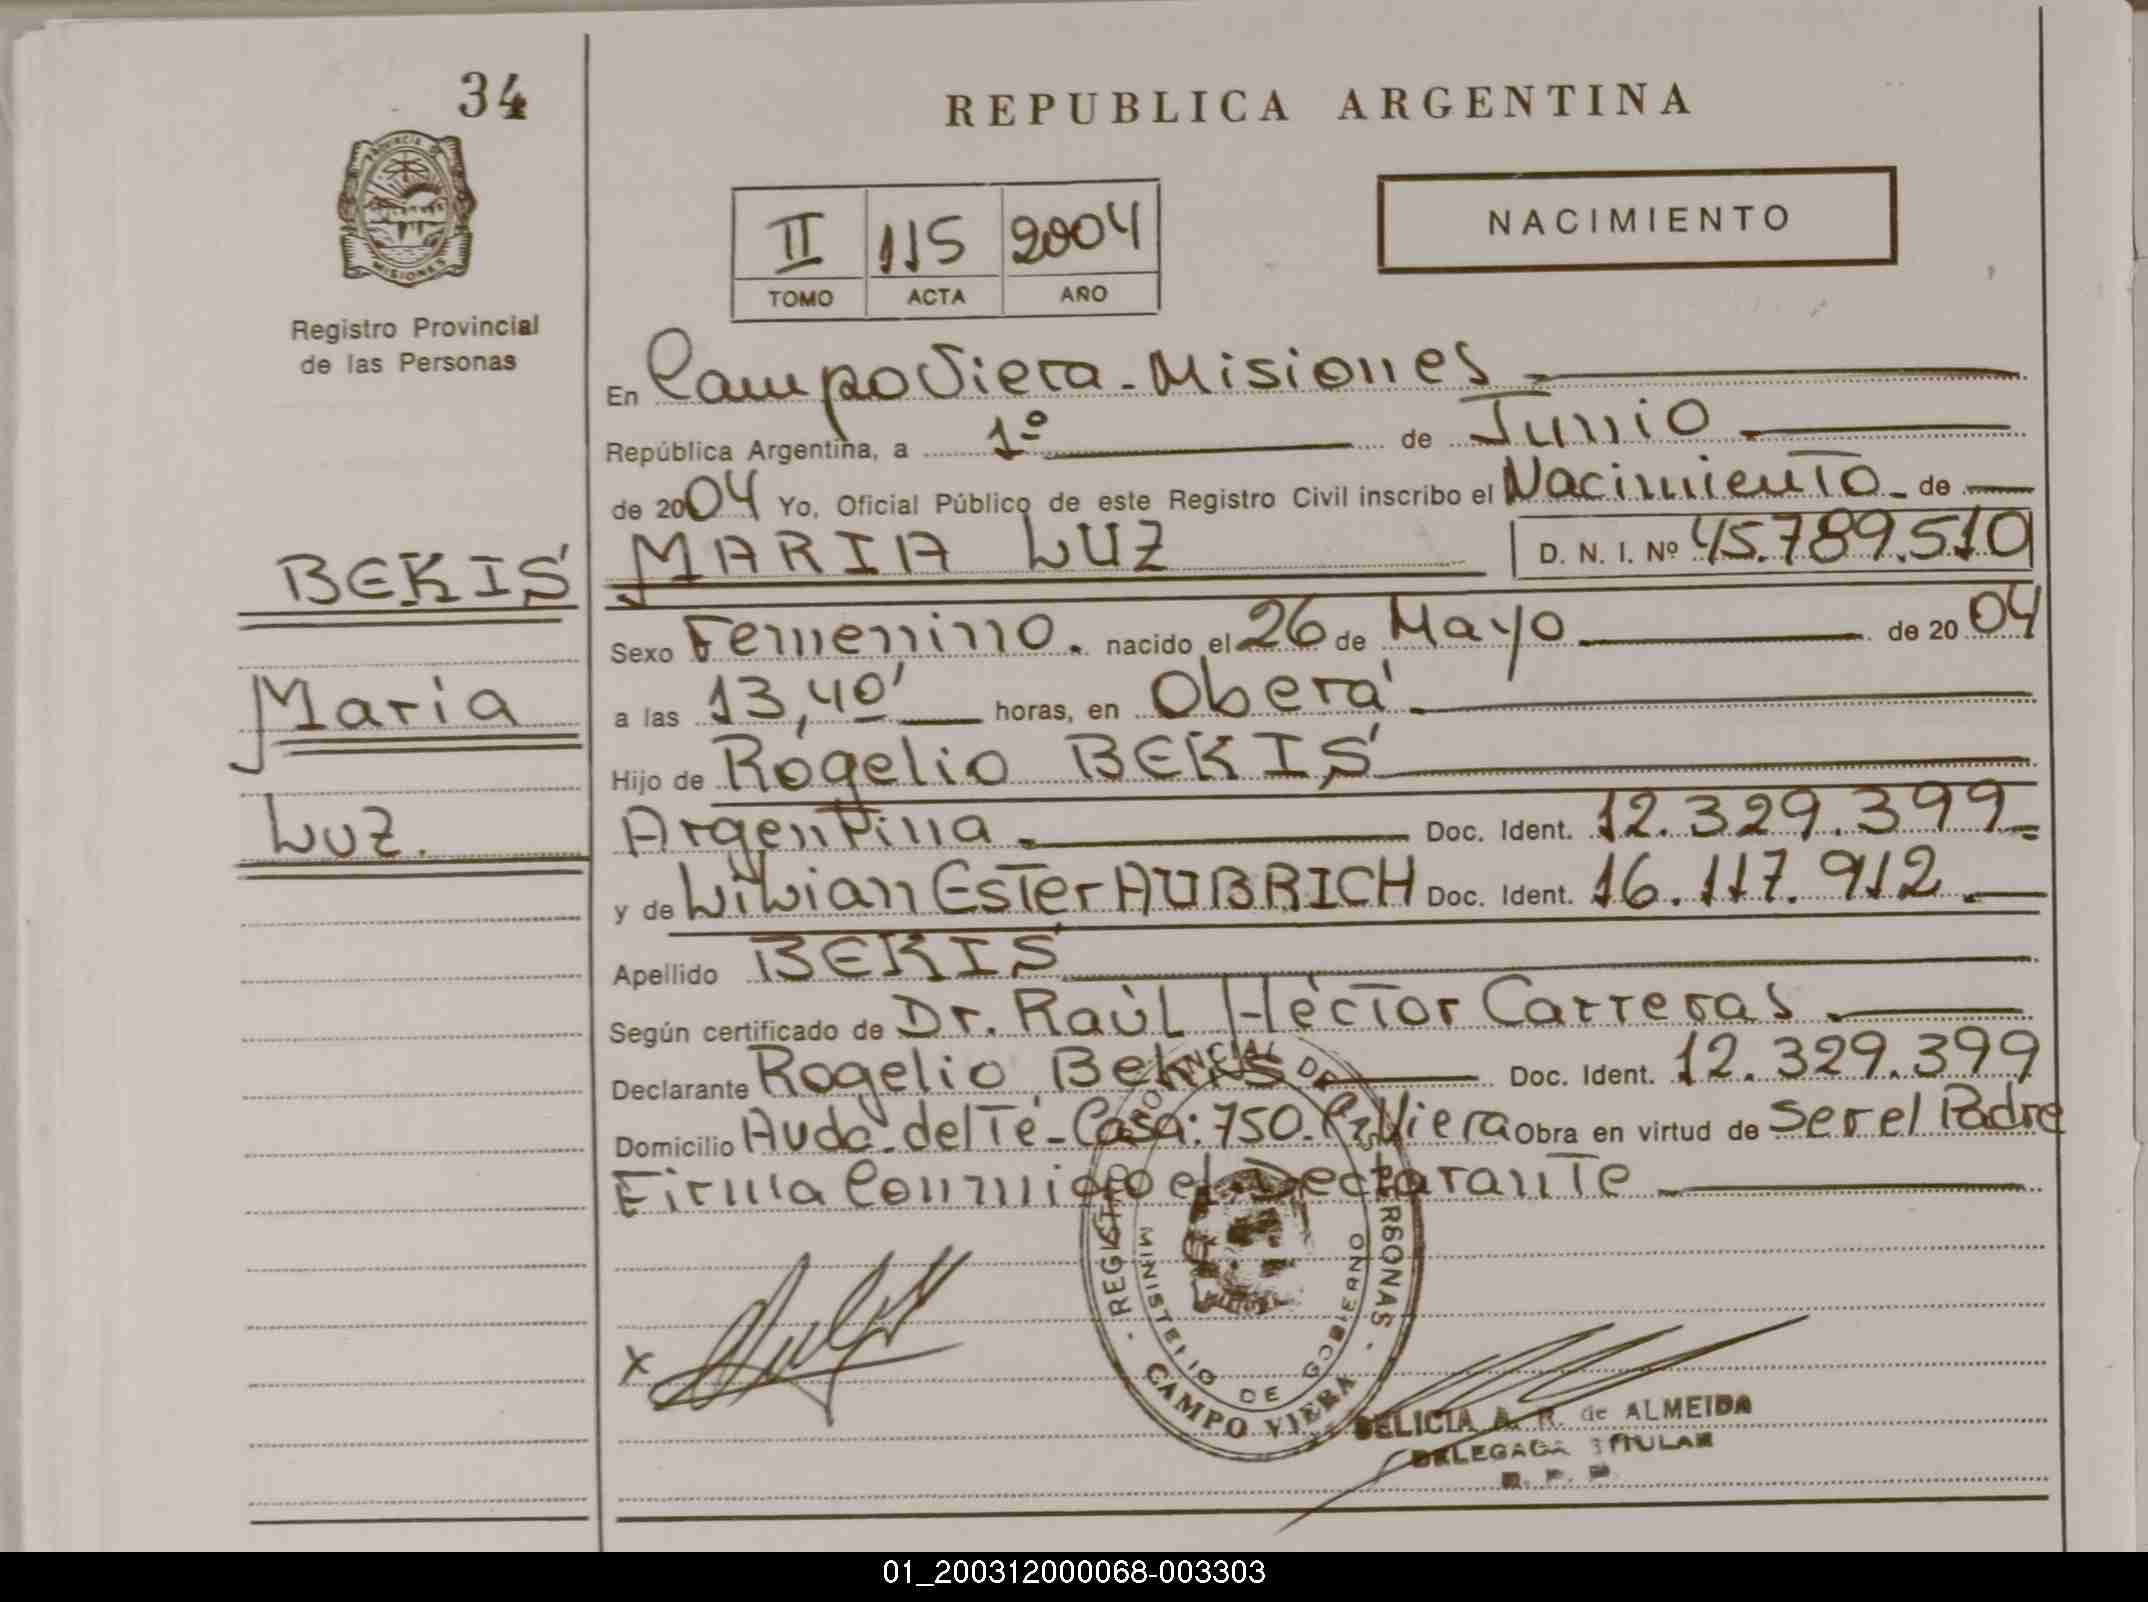 34
REPUBLICA ARGENTINA
PROVINCIA DE
MISIONES
Registro Provincial
de las Personas
II 115 2004
TOMO ACTA AÑO
NACIMIENTO
En Campo Viera - Misiones
República Argentina, a 1º de Junio
de 2004 Yo, Oficial Público de este Registro Civil inscribo el Nacimiento de
BEKIS MARIA LUZ D. N. I. Nº 45.789.510
Sexo Femenino. nacido el 26 de Mayo de 2004
Maria a las 13,40' horas, en Oberá
Hijo de Rogelio BEKIS
Luz. Argentina Doc. Ident. 12.329.399
y de Lilian Ester AUBRICH Doc. Ident. 16.117.912
Apellido BEKIS
Según certificado de Dr. Raúl Héctor Carreras
Declarante Rogelio Bekis Doc. Ident. 12.329.399
Domicilio Avda. del Té - Casa: 750. C. Viera Obra en virtud de Ser el Padre
Firma Conmigo el Declarante
x
MINISTERIO DE GOBIERNO
CAMPO VIERA
DELICIA A. R. de ALMEIDA
DELEGADA TITULAR
01_200312000068-003303